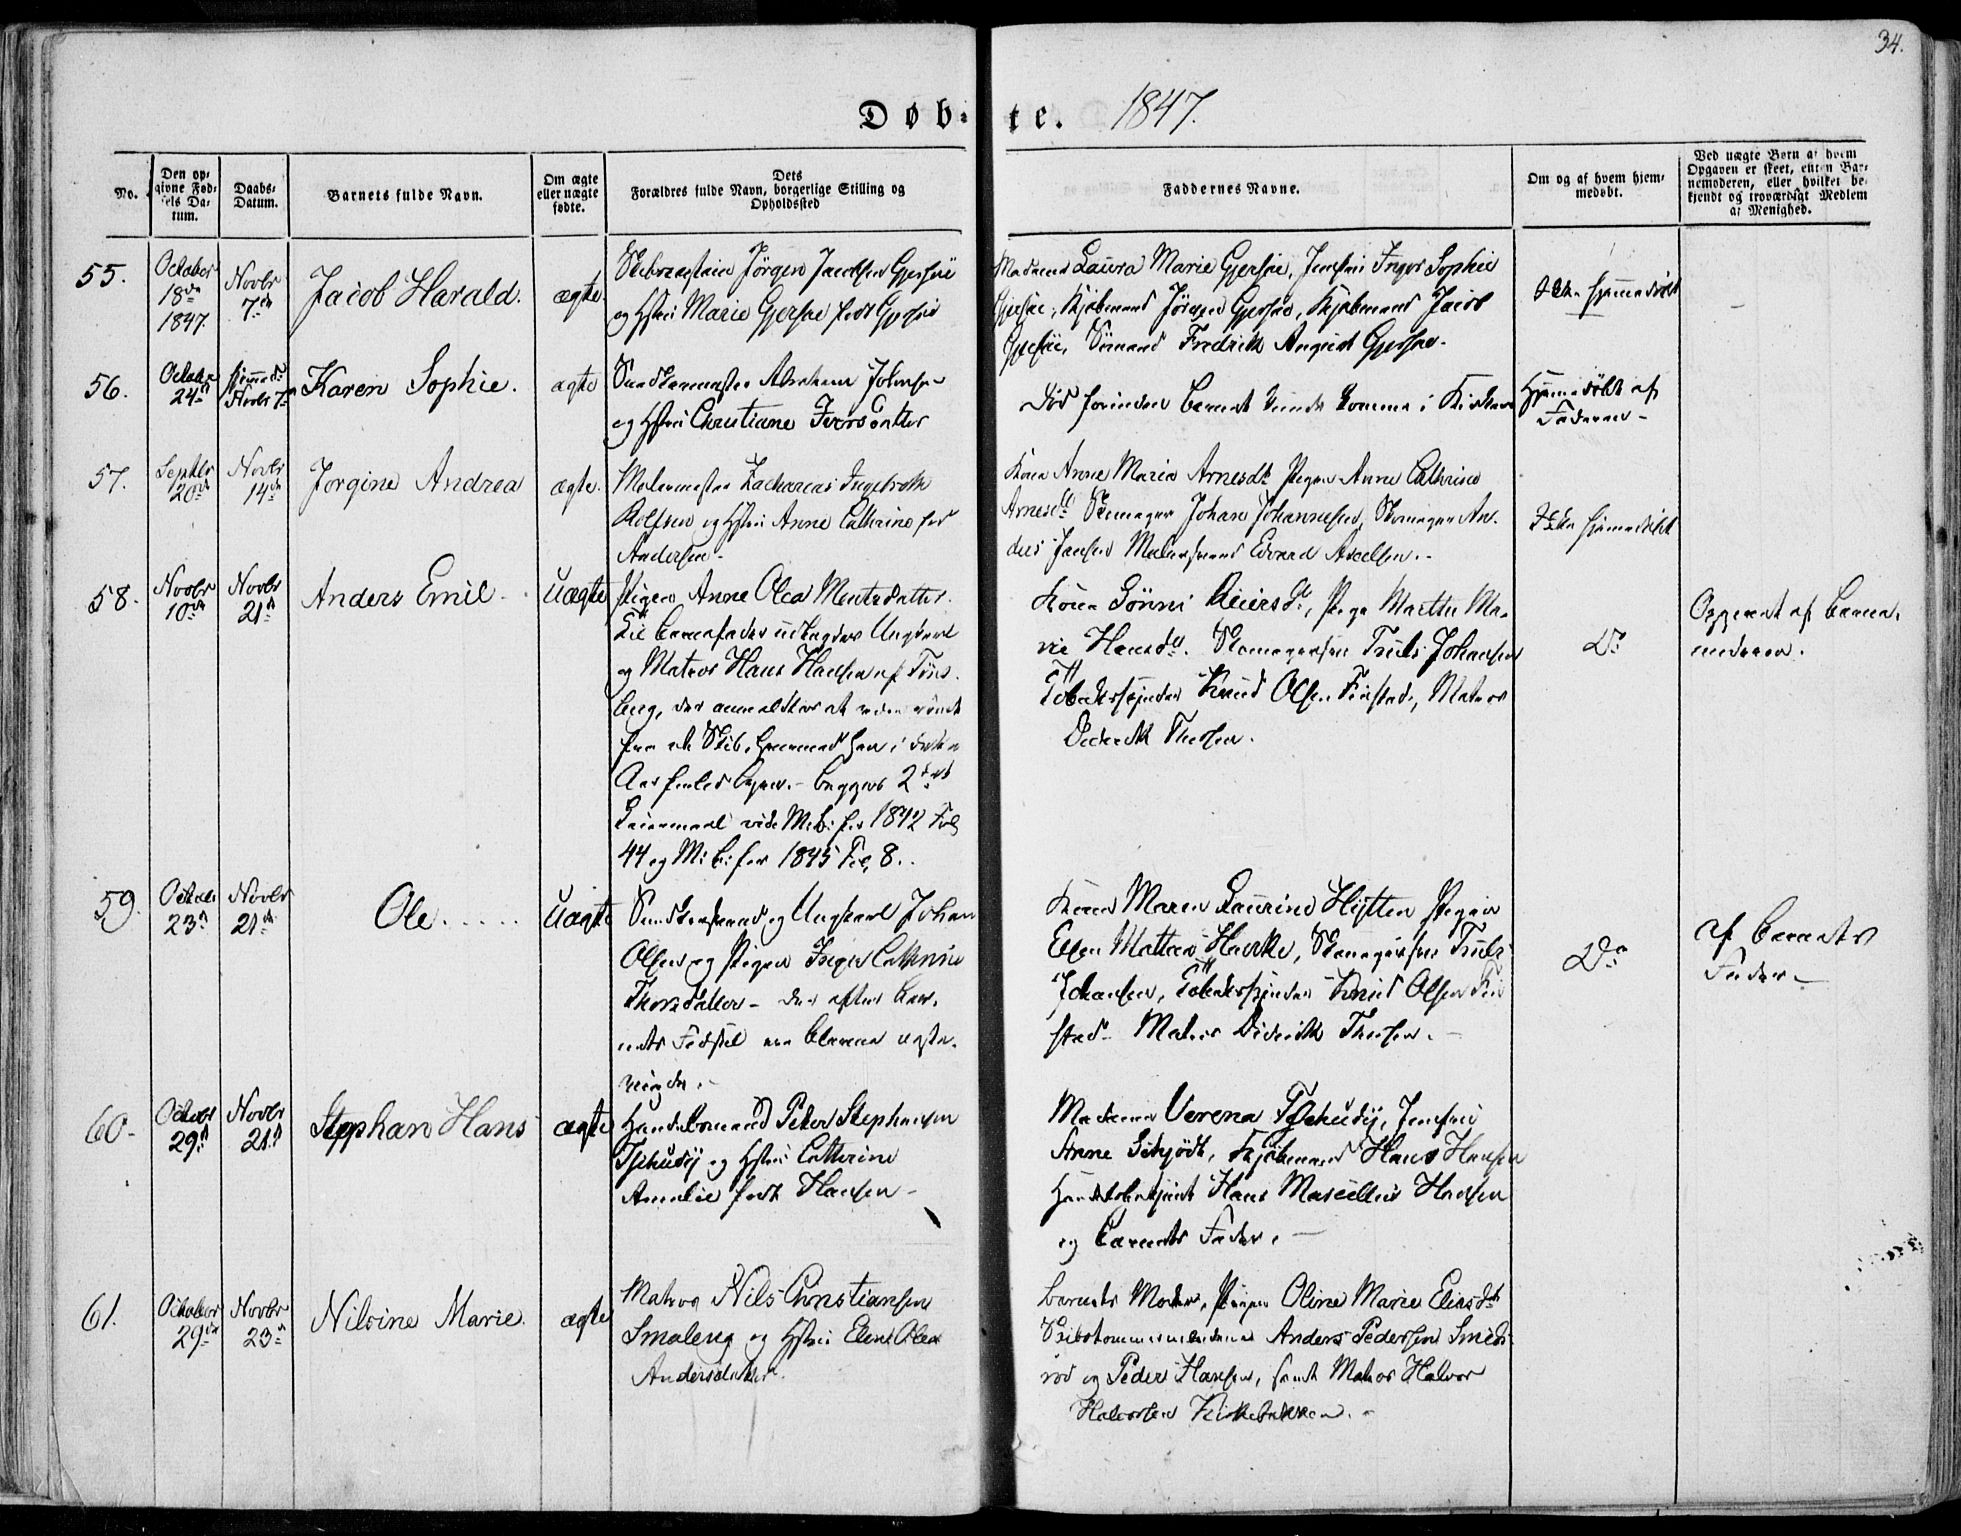 34.
Døb- te. 1847.
No.
Den op-
givne Fød-
sels Da-
tum.
Daabs-
Datum.
Barnets fulde Navn.
Om ægte
eller uægte
fødte.
Dets
Forældres fulde Navn, borgerlige Stilling og
Opholdssted
Faddernes Navne.
Om og af hvem hjem-
medøbt.
Ved uægte Børn af hvem
Opgaven er skeet, enten Bar-
nemoderen, eller hvilket be-
kjendt og troværdigt Medlem
af Menighed.
55.
October
18de
1847.
Novbr
7de
Jacob Harald.
ægte.
Jørgen Jacobsen Gjersøe
og Hstri Marie Gjersøe født Gjersøe
Madame Laura Marie Gjersøe, Jomfrue Inger Sophie
Gjersøe, Kjøbmand Jörgen Gjersøe, Kjøbmand Jacob
Gjersøe, Sömand Fredrik August Gjersøe.
Ikke hjemmedøbt
56.
October
24de
hjemmed:
Novbr 7de
Karen Sophie.
ægte
Abraham Johnsen
og Hstri Christiane Iversdatter
Död forinden Barnet kunde komme i Kirken
Hjemmedøbt af
Faderen -
57.
Septbr
20de
Novbr
14de
Jorgine Andrea
ægte.
Malermester Zacharias Ingebreth
Rolfsen og Hstri Anne Cathrine fød
Andersen.
Kone Anne Maria Arnesdt Pigen Anne Cathrine
Arnesdt Skomager Johan Johannesen, Skomager An-
ders Jensen Malersvend Edvard Axelsen.
Ikke hjemmedøbt
58.
Novbr
10de
Novbr
21de
Anders Emil
Uægte
Pigen Anne Olea Mentzdatter.
Til Barnefader udlægges Ungkarl
og Matros Hans Hansen af Töns-
berg, der anmeldtes at være römt
fra et Skib, hvormed han i dette
Aar förled Byen. - begges 2det
Leiermaal vide M:B: for 1842 Fol
44 og M:B: for 1845 Fol 8.
Kone Gönni Reiersdt, Pige Marthe Ma-
rie Hansdt. Skomagersvend Truls Johansen
Tobakksspinder Knud Olsen Finstad, Matros
Diderik Thesen.
Do
Opgivet af Barne-
moderen.
59.
October
23de
Novbr
21de
Ole.....
Uægte
og Ungkarl Johan
Olsen og Pigen Inger Cathrine
Thorsdatter - der efter Bar-
nets Födsel ere blevne ægte-
viede.
Kone Maren Laurine Hytten Pigen
Ellen Mathea Hancke, Skomagersvend Truls
Johansen, Tobakksspinder Knud Olsen Fin-
stad. Matros Diderik Thesen.
Do
af Barnets
Fader.
60.
Octobr
29de
Novbr
21de
Stephan Hans
ægte
Handelsmand Peter Stephansen
Tschudy og Hstri Cathrine
Amalie født Hansen -
Madame Verena Tschudy, Jomfrue
Anne Schjödt, Kjøbmand Hans Hansen
Handelsbetjent Hans Marcellius Hansen
og Barnets Fader.
61.
October
29de
Novbr
23de
Nilvine Marie.
ægte
Matros Nils Christiansen
Smaleng og Hstri Elene Olea
Andersdatter.
Barnets Moder, Pigen Oline Marie Eliasdt
Skibstømmermændene Anders Pedersen Smids-
röd og Peder Hansen, samt Matros Halvor
Halvorsen Kirkebakken.